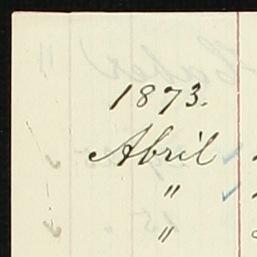 1873.
Abril
"
"